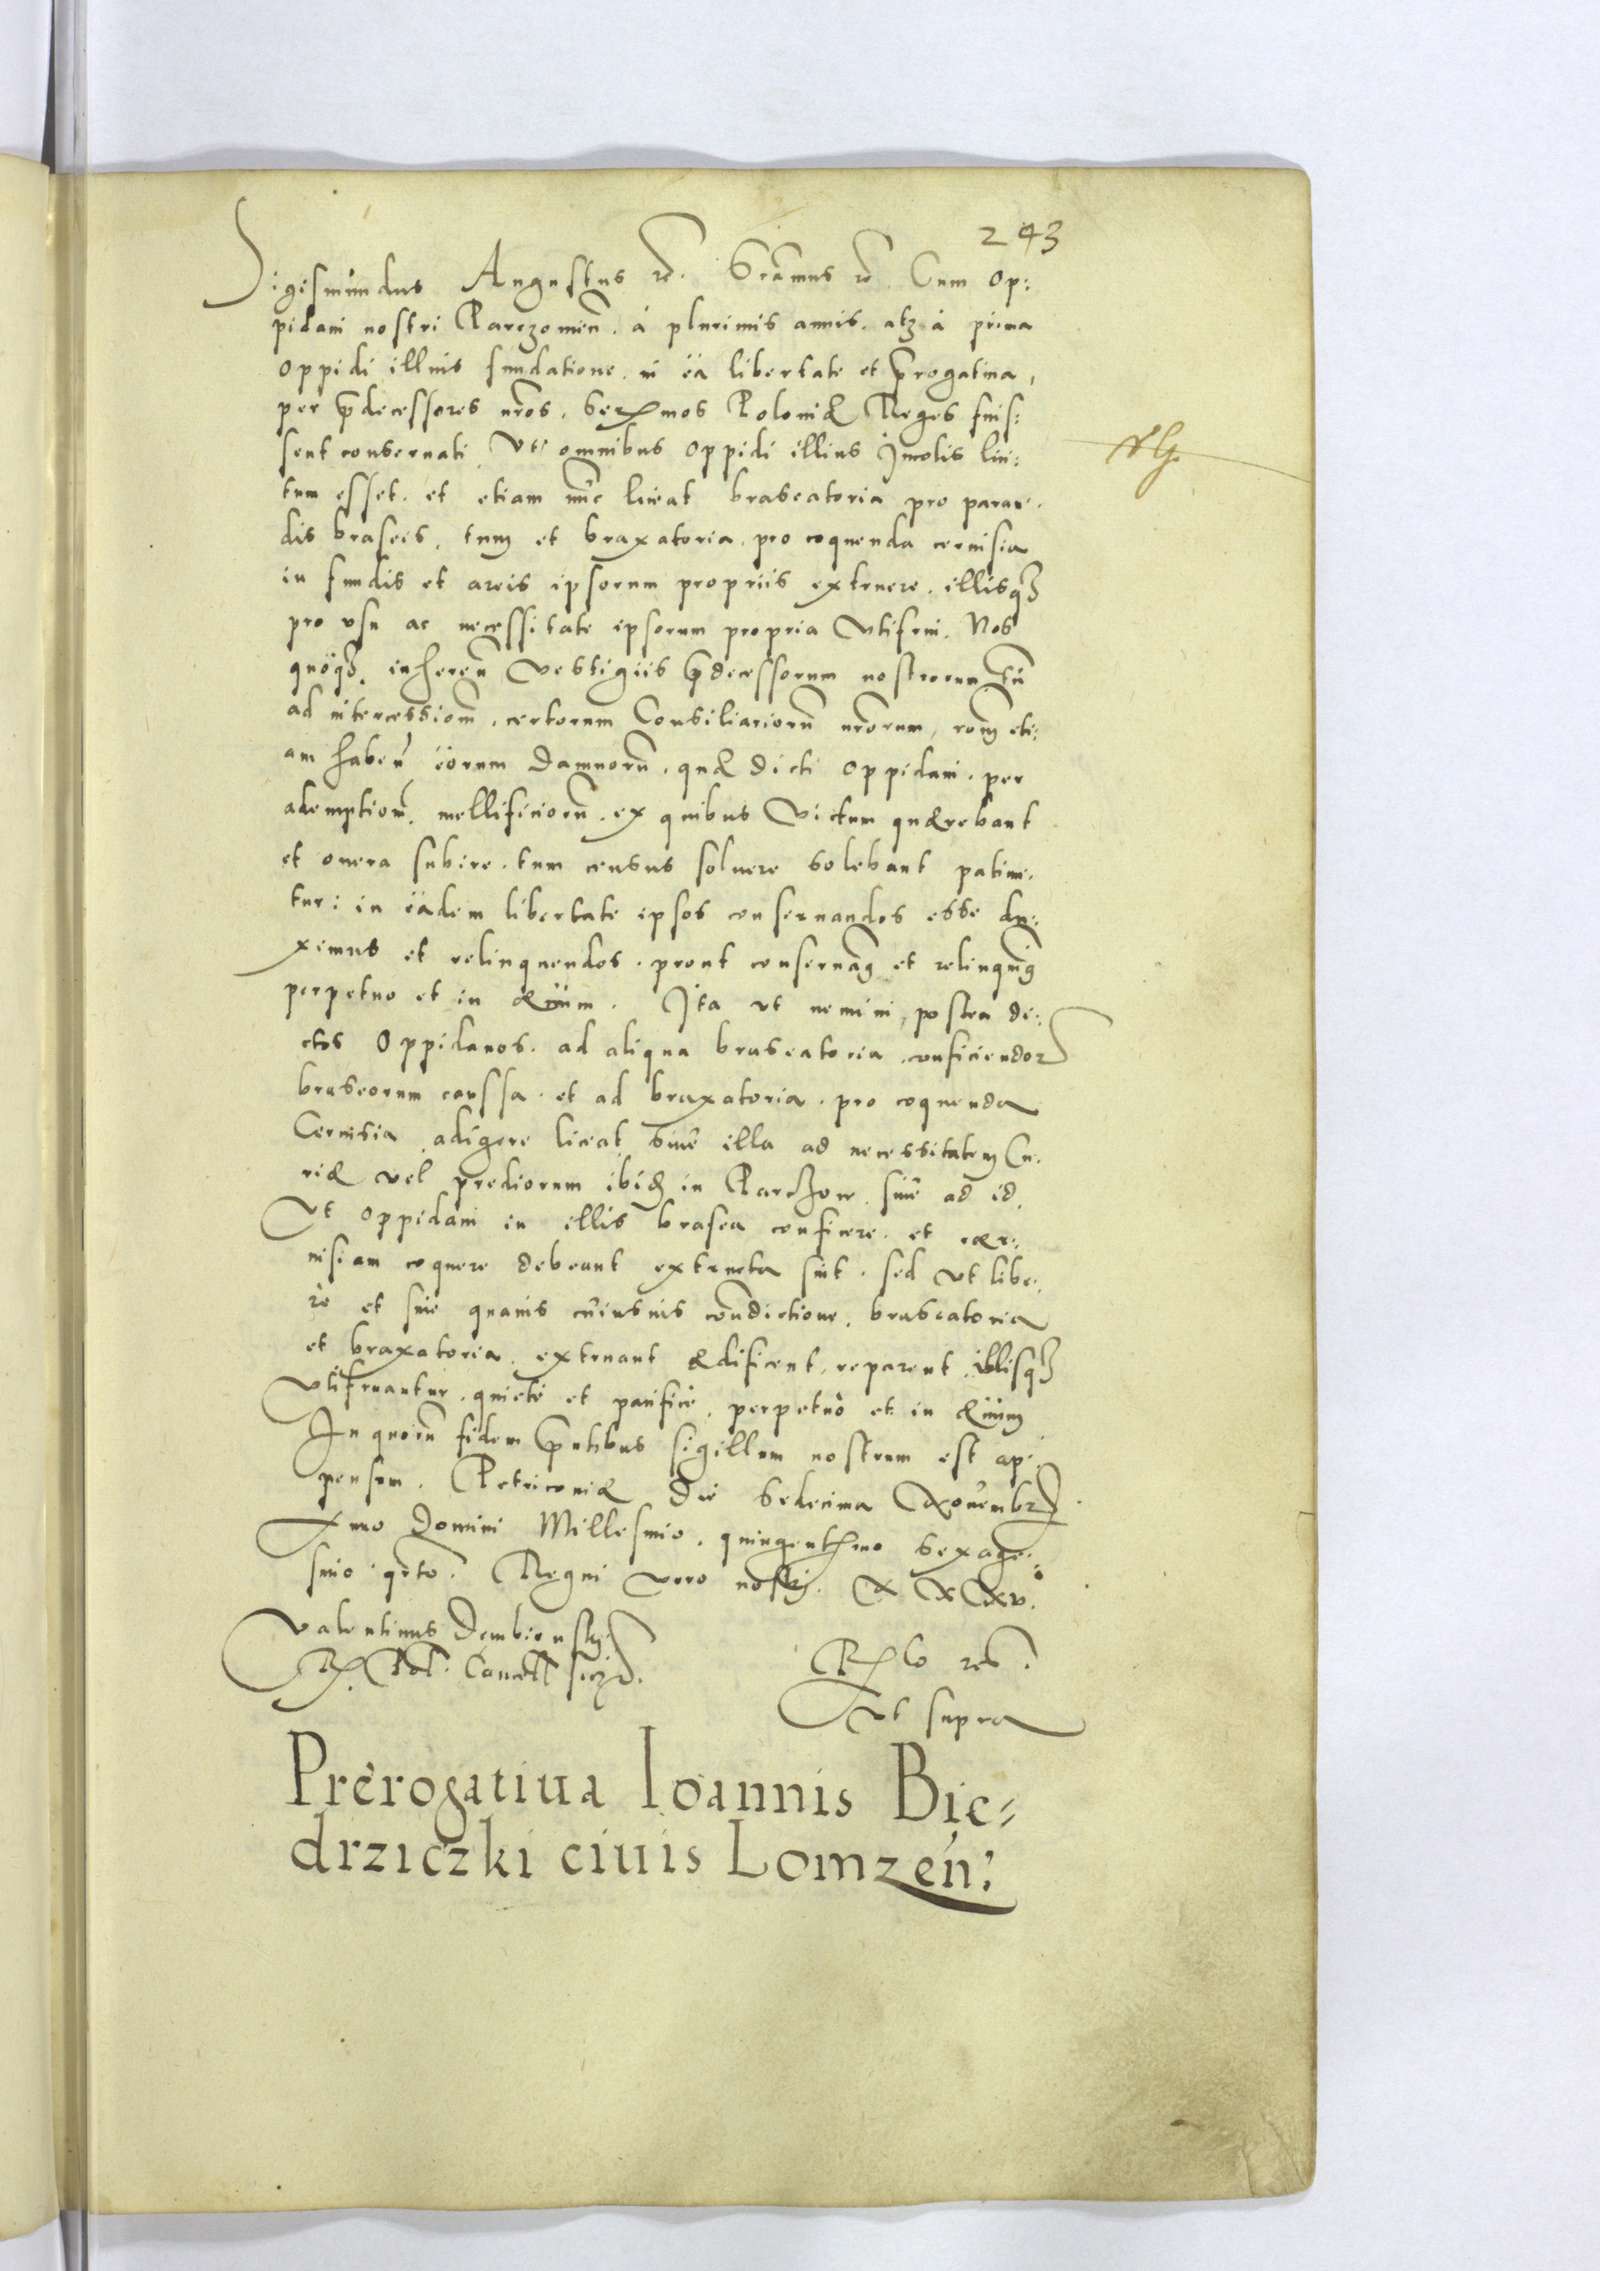 243
Sigismundus Augustus rc. Srämus rc Cum op:
pidani nostri Parczowień. á plurimis annis. atq3 á prima
oppidi illius fundatione. in ëa libertate et prerogatiua,
per prædecessores nrōs. Serēmos Poloniæ Reges fuis:
sent conseruati Vti omnibus oppidi illius Incolis lici:
tum esset. et etiam nūc liceat braseatoria pro paran:
dis braseis, tum et braxatoria. pro coquenda ceruisia
in fundis et areis ipsorum propriis extruere. illisq3
pro vsu ac necessitate ipsorum propria Vtifrui. Nos
quoq3. inhereñ vestigiis prædecessorum nostrorum tū
ad intercessioēm. certorum Consiliariorū nrōrum, roēm eti:
am habeñ eorum Damnorū. quæ dicti oppidani. per
ademptioēm. mellificiorū. ex quibus Victum quærebant
et onera subire. tum census soluere solebant patiun:
tur: in ëadem libertate ipsos conseruandos esse du:
ximus et relinquendos. prout conseruām9 et relinquim9
perpetuo et in æuum. Ita vt nemini, postea di:
ctos Oppidanos. ad aliqua braseatoria conficiendorū
braseorum caussa. et ad braxatoria. pro coquenda
Ceruisia adigere liceat siue illa ad necessitatem Cu:
riæ vel prediorum ibidem in Parczow. siue ad id.
Vt oppidani in illis brasea conficere. et cer:
uisiam coquere debeant extructa sint. sed vt libe:
rè et sine quauis cuiusuis contradictione. braseatoria
et braxatoria. extruant ædificent. reparent illisq3
Vtifruantur. quietè et pacificè. perpetuò et in æuum
In quorū fidem præntibus sigillum nostrum est ap:
pensum. Petricouiæ Die Sedecima Nouembr
Anno Domini Millesimo. quingentesimo Sexage:
simo qrto. Regni vero nostri. XXXV.
Valentinus Dembienski
R. Pol. Cancell sczt.
Rlo rc.
vt supra
Prerogatiua Ioannis Bie=
drziczki ciuis Lomzeń: